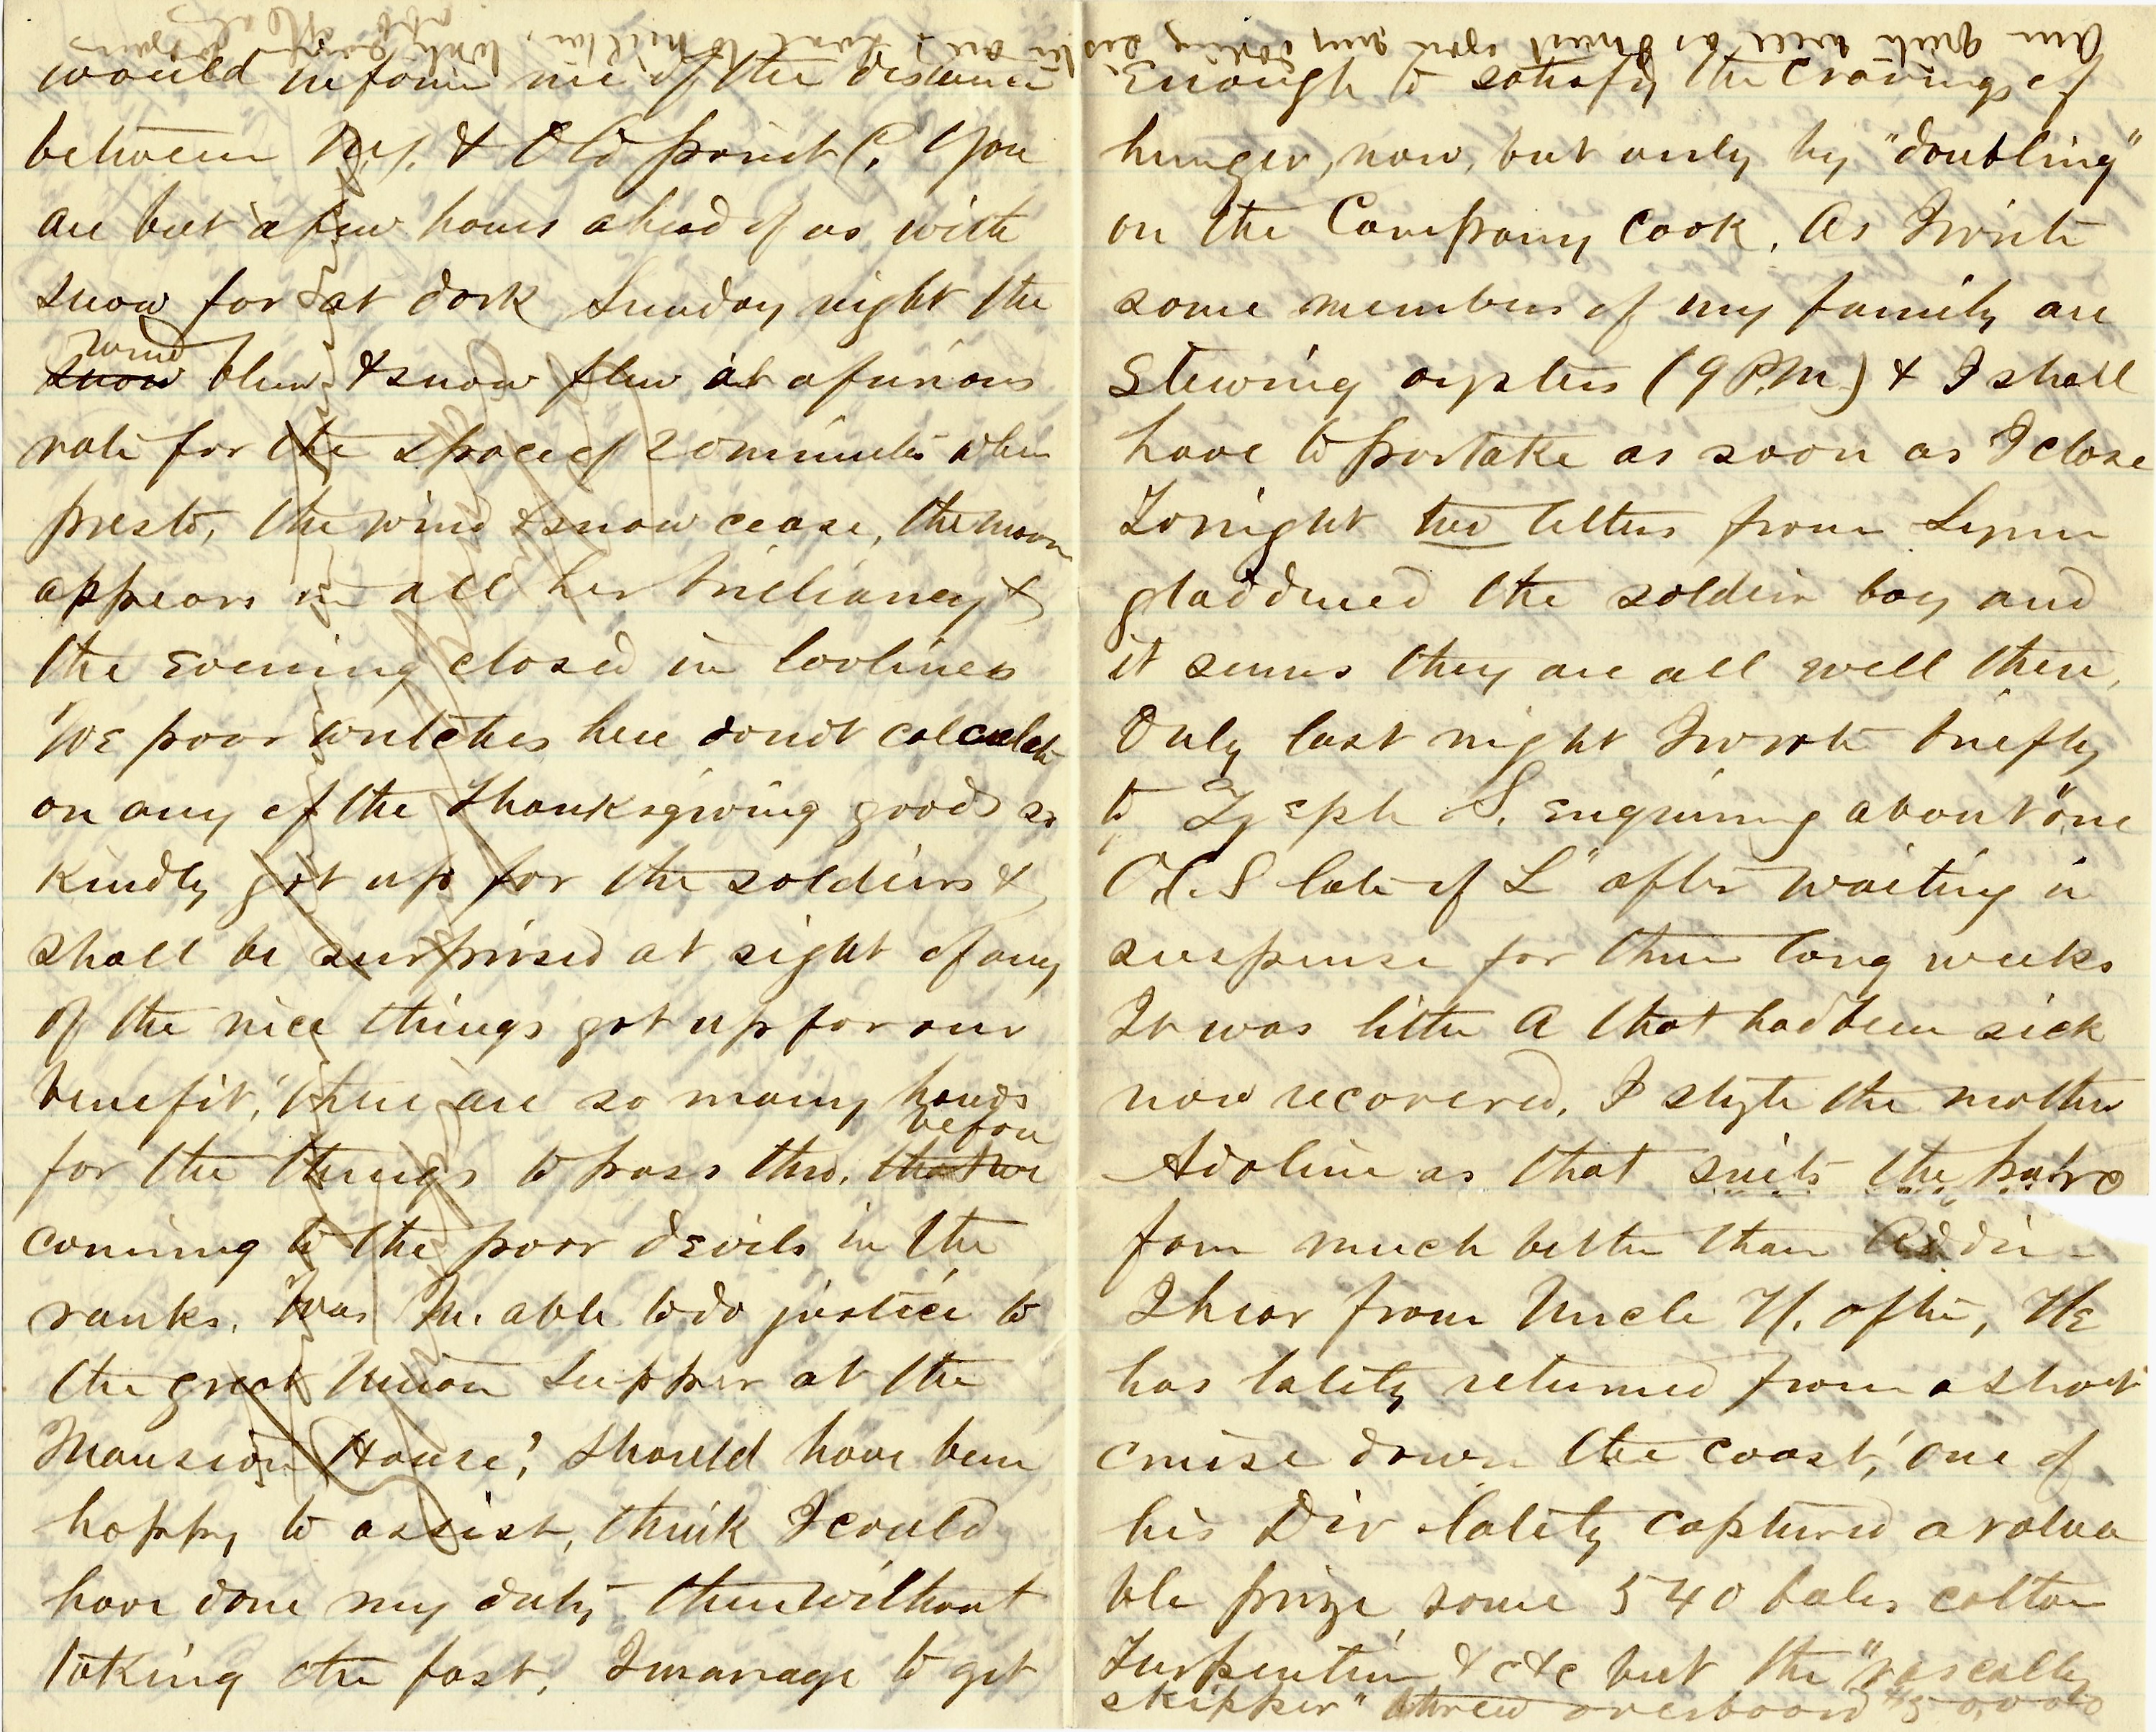 would inform me of the distance
between N.Y. & Old point C. You
are but a few hours ahead of us with
snow for at dark Sunday night the
snow wind blew & snow flew at a furious
rate for the space of 20 minutes when
presto, the wind & snow cease, the moon
appears in all her brilliancy &
the evening closed in lovliness
We poor wretches here dont calculate
on any of the Thanksgiving goods so
kindly got up for the soldiers &
shall be surprised at sight of any
of the nice things got up for our
benefit, there are so many hands
for the things to pass thro. before
coming to the poor devils in the
ranks. Was M. able to do justice to
the great Union Supper at the
Mansion House? Should have been
happy to assist, think I could
have done my duty there without
taking the fast, I manage to get
Am quite well as I trust you are, darling sister
enough to satisfy the cravings of
hunger, now, but only by "doubling"
on the Company Cook. As I write
some members of my family are
stewing oysters (9 P.M.) & I shall
have to partake as soon as I close
Tonight two letters from Lynn
gladdened the soldier boy and
it seems they are all well there,
Only last night I wrote briefly
to Zyeph S. enquiring about "one
O.C.S late of L" after waiting in
suspense for three long weeks
It was little A that had been sick
now recovered. I style the mother
Adoline as that suits the
form much better than Addie -
I hear from Uncle H. often, He
has lately returned from a short
cruise down the coast, one of
his Div lately captured a valua
ble prize, some 540 bales cotton
Turpentine & c & c but the "rascally
skipper" threw overboard